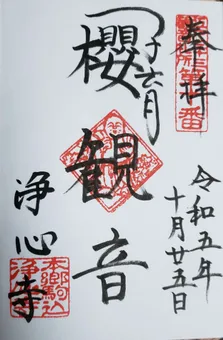 奉拝
子六月
櫻観音
令和五年
十月廿五日
浄心寺
本郷駒込
浄心寺